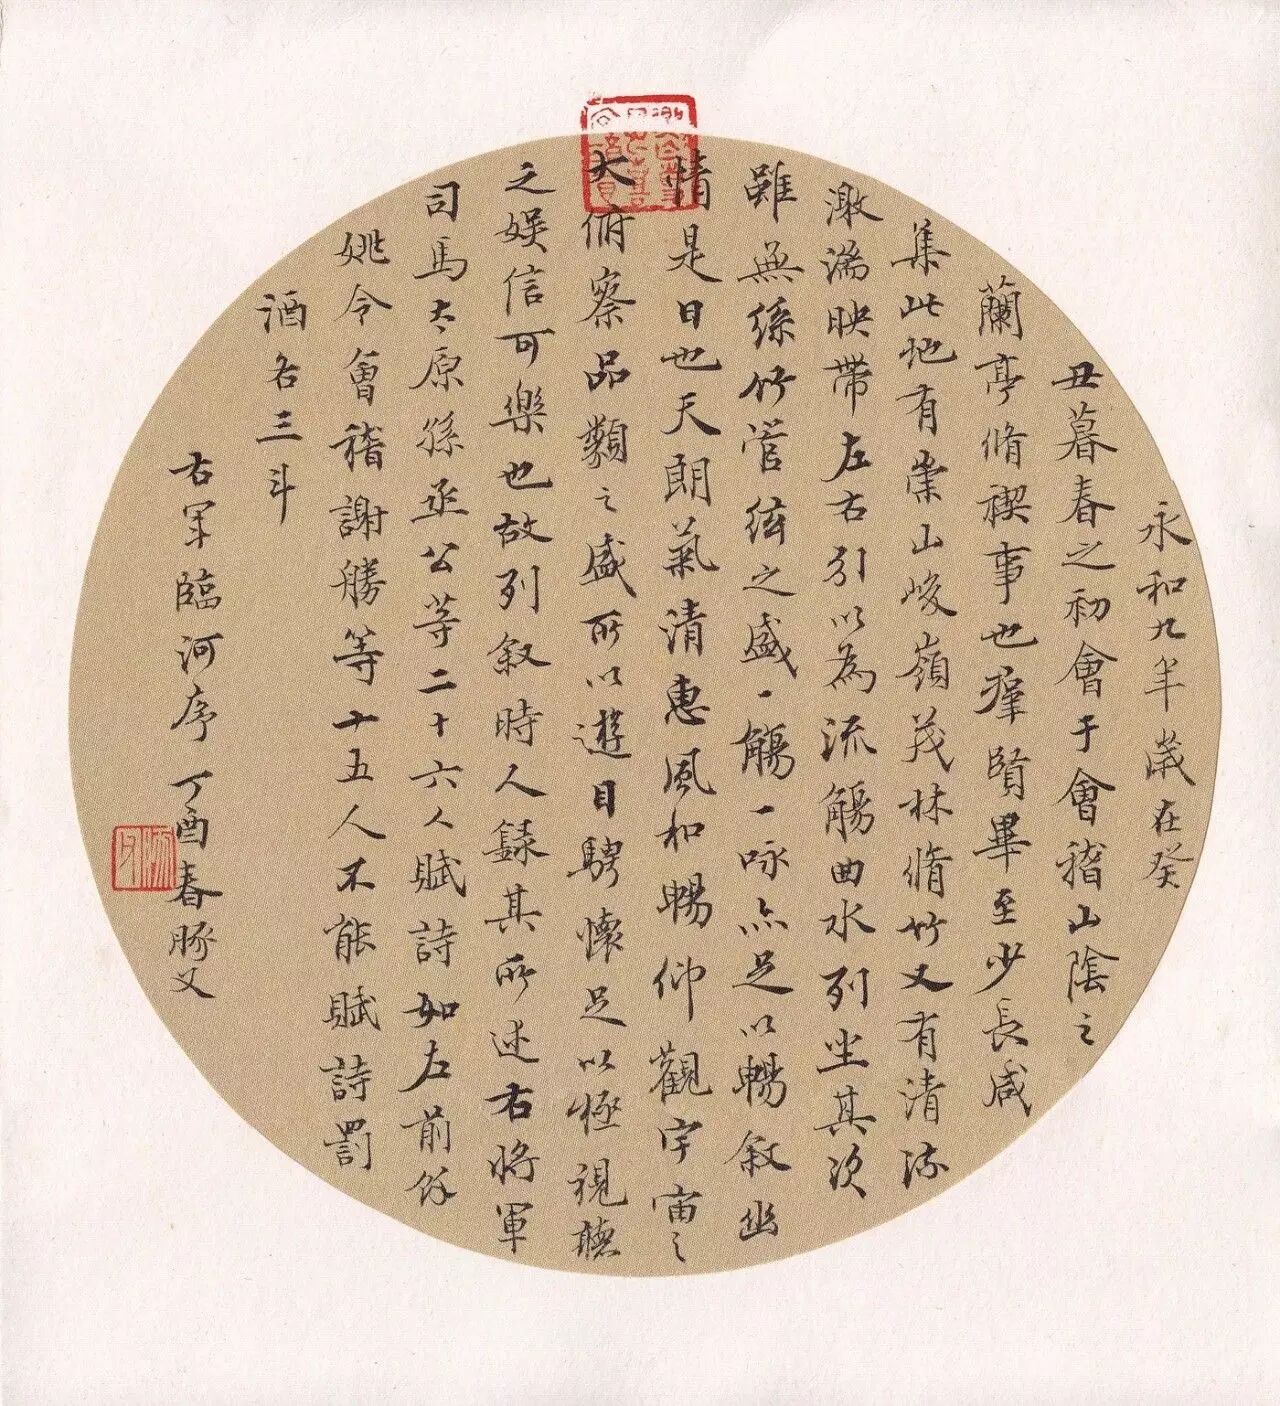 永和九年歲在癸
丑暮春之初會于會稽山陰之
蘭亭脩禊事也羣賢畢至少長咸
集此地有崇山峻嶺茂林脩竹又有清流
激湍映帶左右引以為流觴曲水列坐其次
雖無絲竹管絃之盛一觴一咏亦足以暢敘幽
情是日也天朗氣清惠風和暢仰觀宇宙之
大俯察品類之盛所以遊目騁懷足以極視聽
之娛信可樂也故列敘時人錄其所述右將軍
司馬太原孫丞公等二十六人賦詩如左前餘
姚令會稽謝勝等十五人不能賦詩罰
酒各三斗
右軍臨河序丁酉春豚又